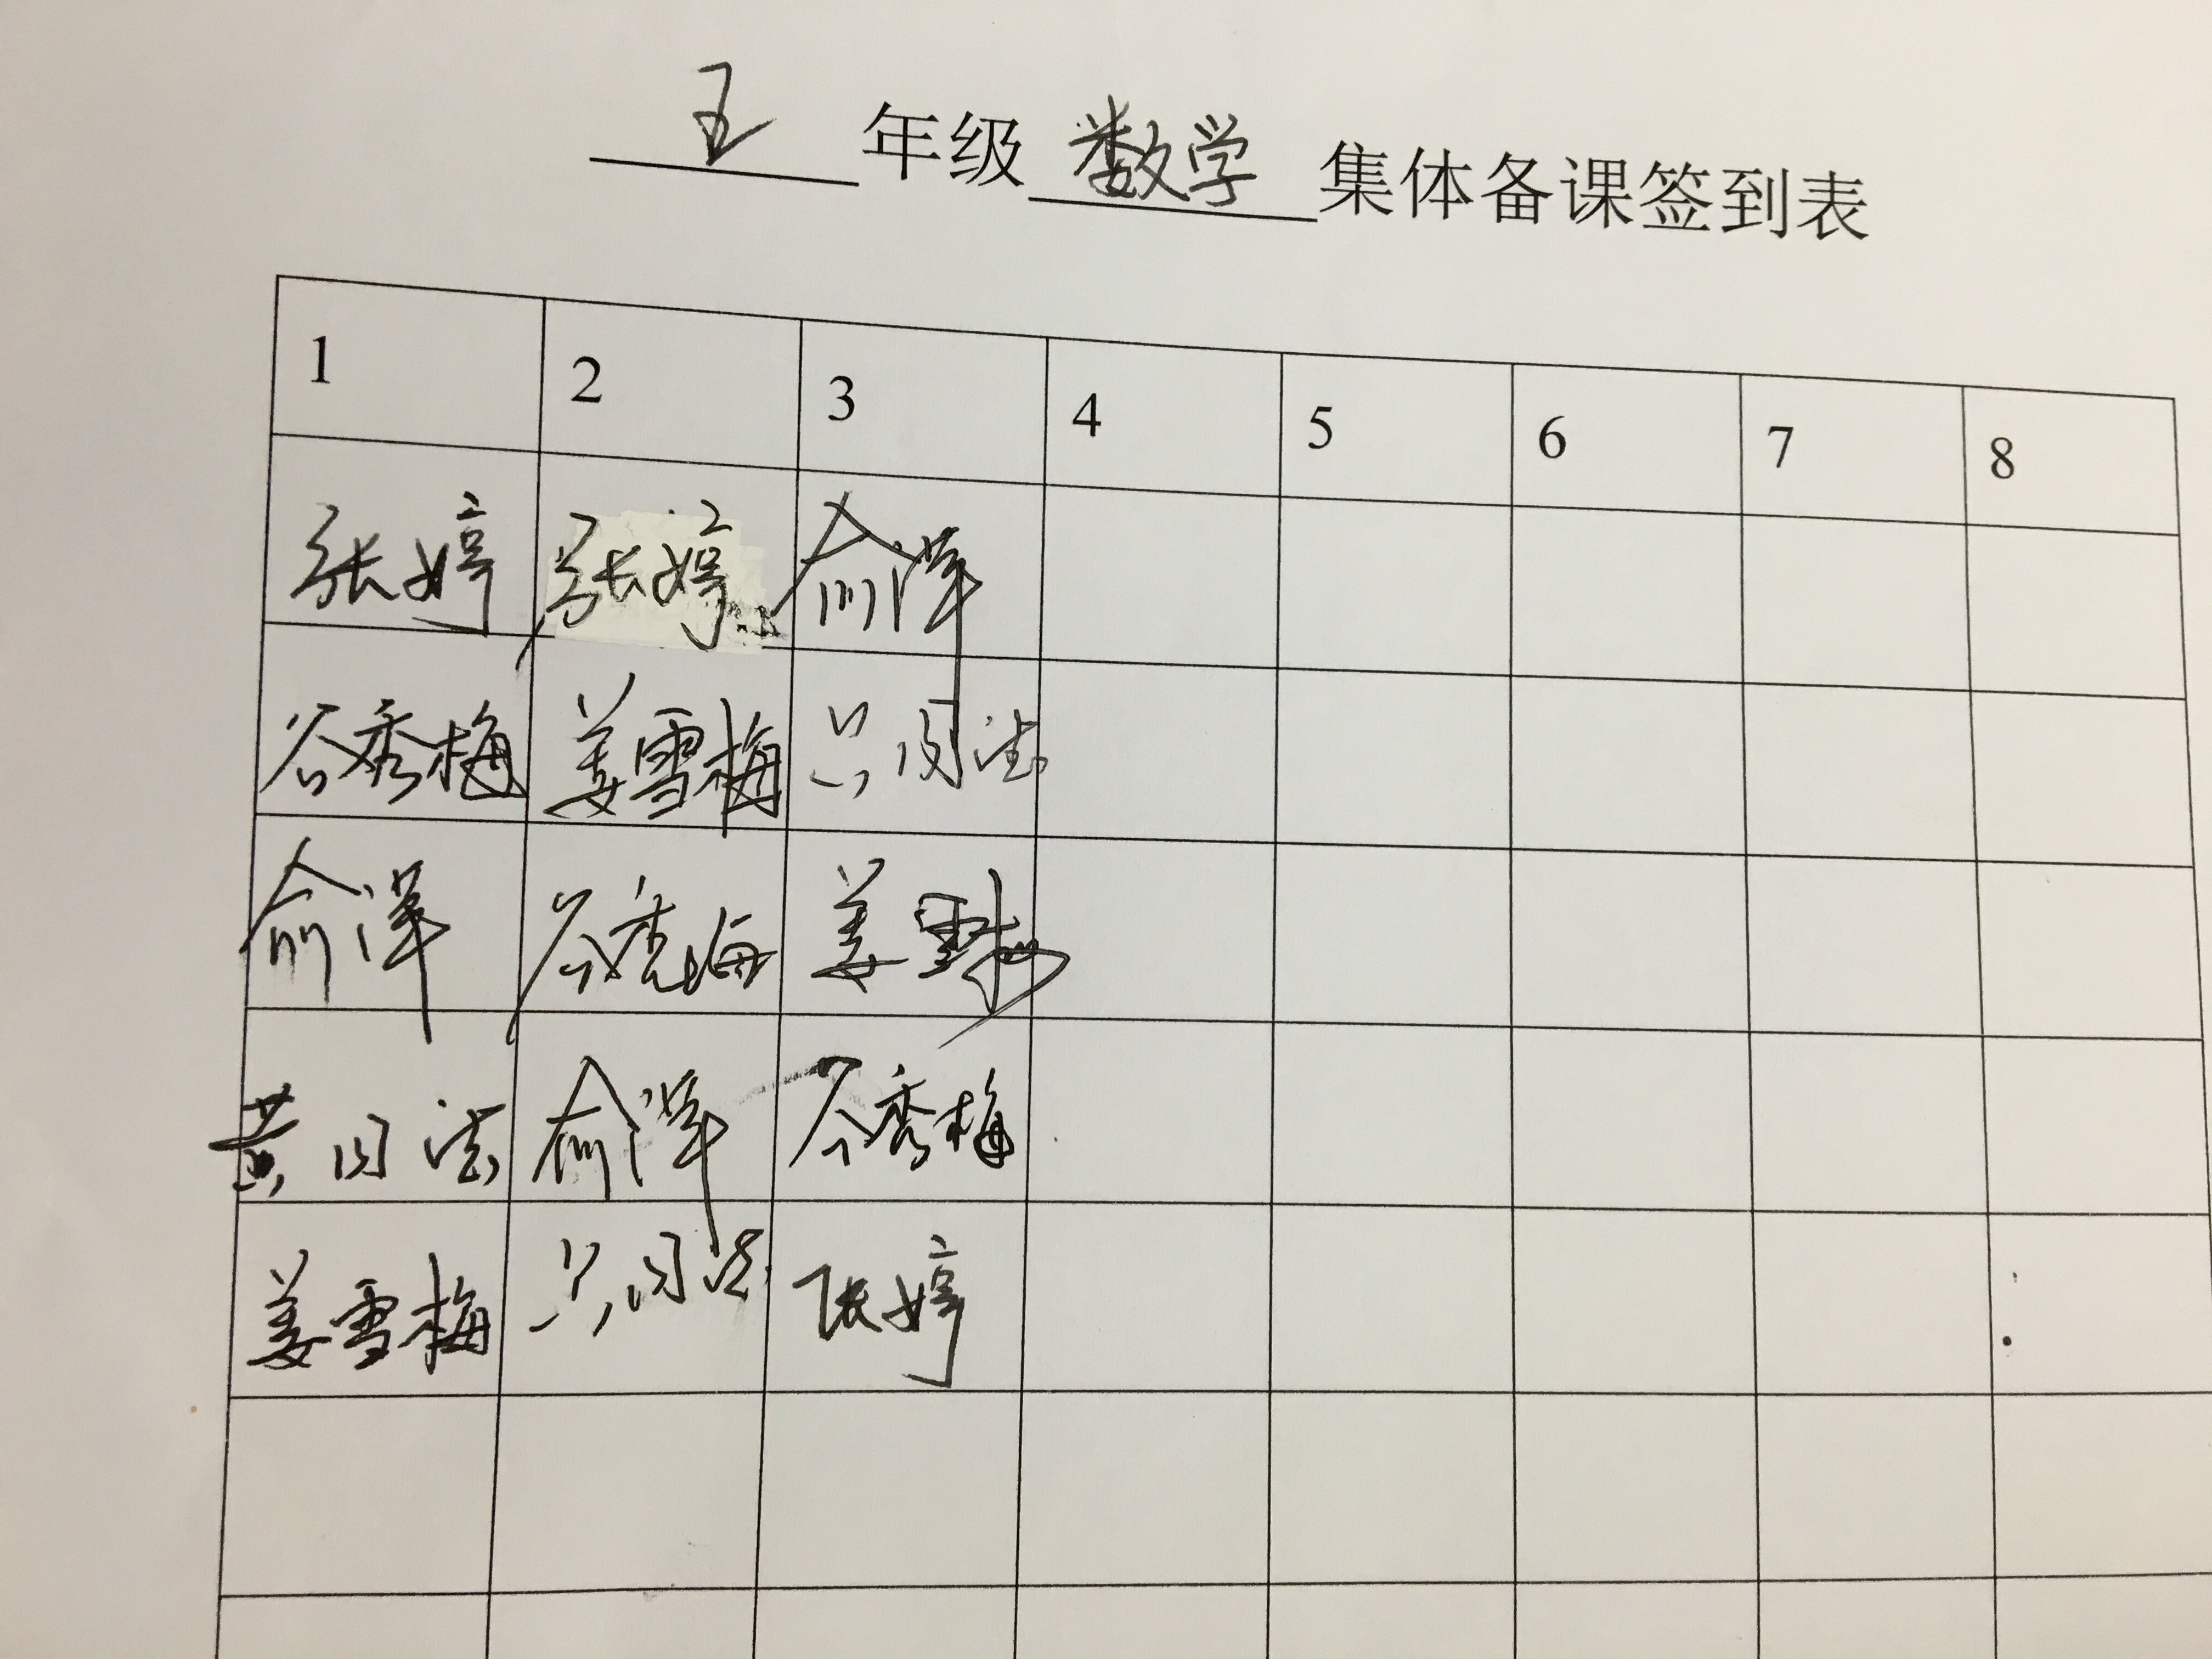 五年级数学集体备课签到表
1 2 3 4 5 6 7 8
张婷 张婷 俞洋
谷秀梅 姜雪梅
俞洋 谷秀梅 姜雪梅
黄 俞洋 谷秀梅
姜雪梅 张婷